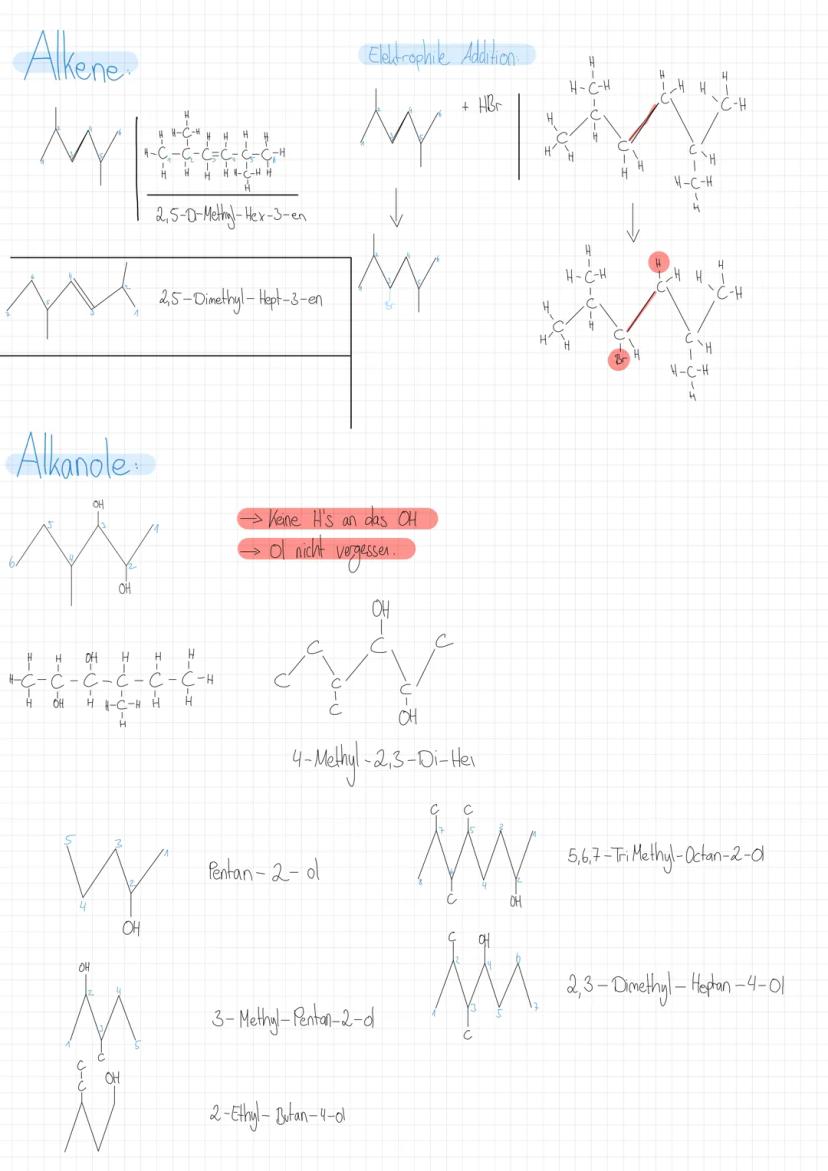 Alkene:
Elektrophile Addition:
+ HBr
2,5-Di-Methyl-Hex-3-en
2,5-Dimethyl-Hept-3-en
Br
Br
Alkanole:
OH
OH
→ Keine H's an das OH
→ Ol nicht vergessen.
OH
OH
OH
OH
4-Methyl-2,3-Di-Hex
Pentan-2-ol
OH
5,6,7-TriMethyl-Octan-2-Ol
OH
OH
3-Methyl-Pentan-2-ol
OH
2,3-Dimethyl-Heptan-4-Ol
OH
2-Ethyl-Butan-4-ol